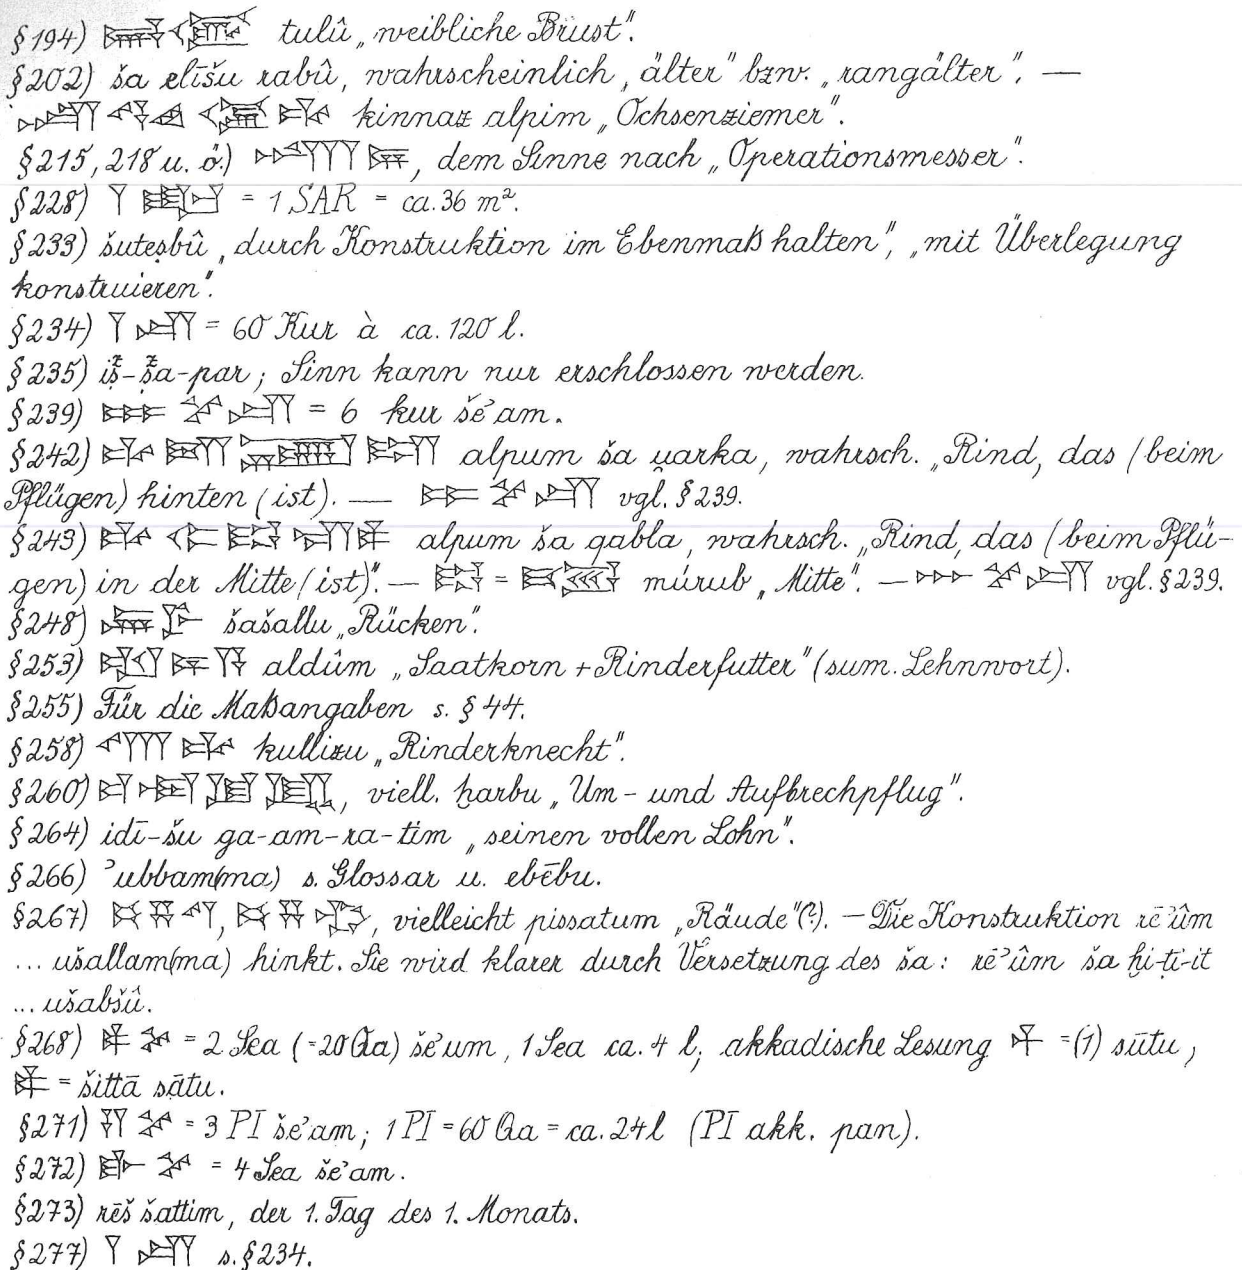 §194) tulû „weibliche Brust“.
§202) ša elīšu rabû, wahrscheinlich „älter“ bzw. „rangälter“. —
kinnaz alpim „Ochsenziemer“.
§215, 218 u. ö.) , dem Sinne nach „Operationsmesser“.
§228) = 1 SAR = ca. 36 m².
§233) šuteṣbû „durch Konstruktion im Ebenmaß halten“, „mit Überlegung
konstruieren“.
§234) = 60 Kur à ca. 120 l.
§235) -ša-par; Sinn kann nur erschlossen werden.
§239) = 6 kur še'am.
§242) alpum ša u̯arka, wahrsch. „Rind, das (beim
Pflügen) hinten (ist). — vgl. §239.
§243) alpum ša qabla, wahrsch. „Rind, das (beim Pflü-
gen) in der Mitte (ist)“. — = múrub „Mitte“. — vgl. §239.
§248) šašallu „Rücken“.
§253) aldûm „Saatkorn + Rinderfutter“ (sum. Lehnwort).
§255) Für die Maßangaben s. § 44.
§258) kullizu „Rinderknecht“.
§260) , viell. ḫarbu „Um- und Aufbrechpflug“.
§264) idī-šu ga-am-ra-tim „seinen vollen Lohn“.
§266) ʾubbam(ma) s. Glossar u. ebēbu.
§267) , , vielleicht pissatum „Räude“(?). — Die Konstruktion rēʾûm
... ušallam(ma) hinkt. Sie wird klarer durch Versetzung des ša: rēʾûm ša ḫi-ṭi-it
... ušabšû.
§268) = 2 Sea (=20 Qa) šeʾum, 1 Sea ca. 4 l; akkadische Lesung = (1) sūtu,
= šittā sātu.
§271) = 3 PI šeʾam; 1 PI = 60 Qa = ca. 24 l (PI akk. pan).
§272) = 4 Sea šeʾam.
§273) rēš šattim, der 1. Tag des 1. Monats.
§277) s. §234.